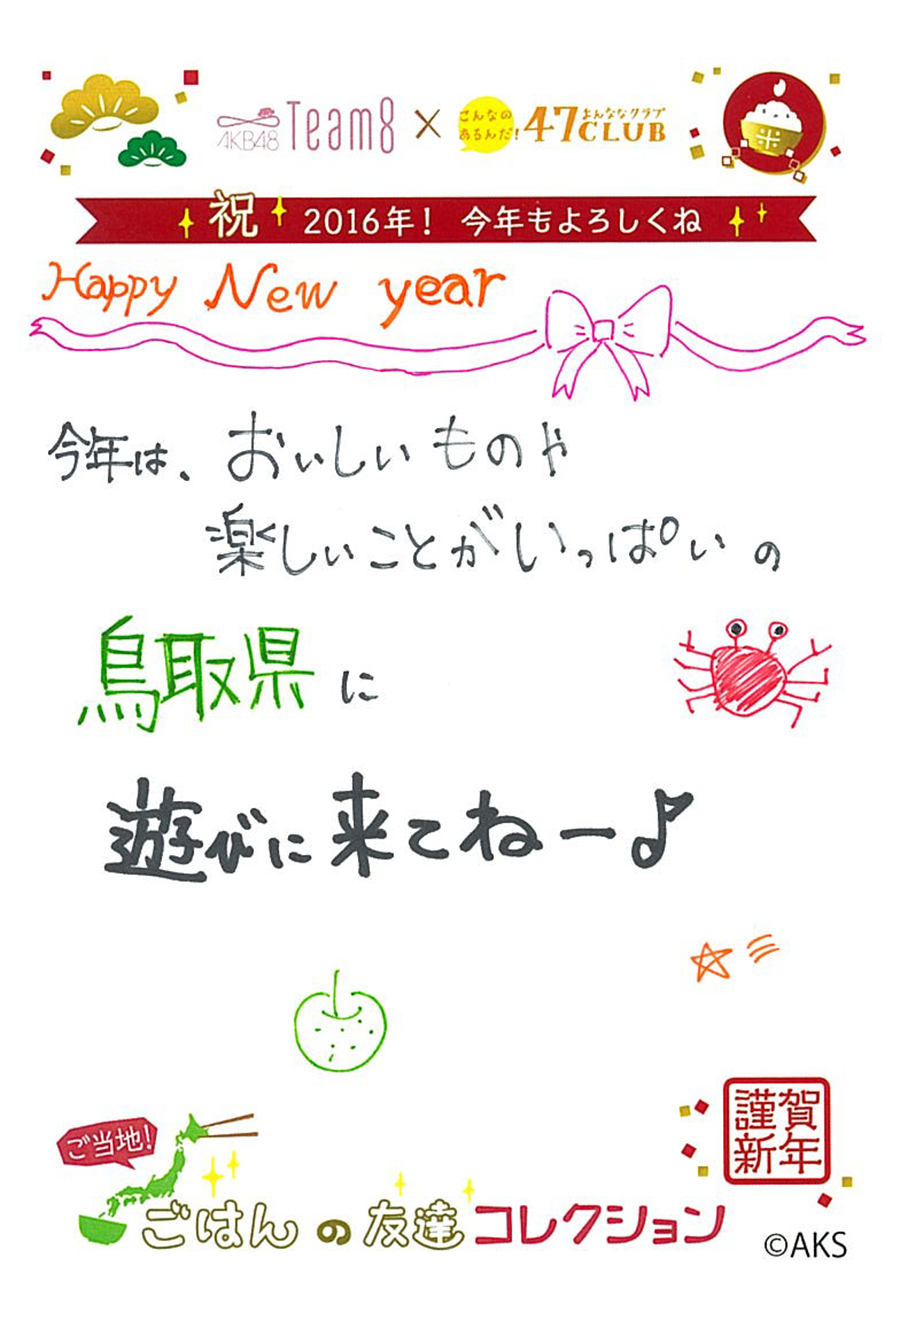 AKB48 Team8 × こんなのあるんだ! 47CLUB よんななクラブ
米
祝 2016年! 今年もよろしくね
Happy New year
今年は、おいしいものや
楽しいことがいっぱいの
鳥取県に
遊びに来てねー♪
謹賀
新年
ご当地!
ごはんの友達コレクション
©AKS